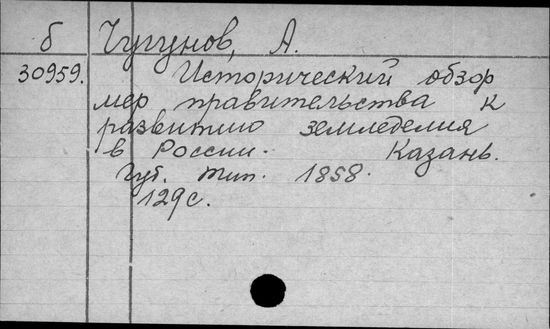 б Чугунов, А.
30959. Исторический обзор
мер правительства к
развитию земледелия
в России. Казань.
Губ. тип. 1858.
129с.